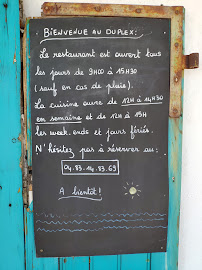 BIENVENUE AU DUPLEX:
Le restaurant est ouvert tous
les jours de 9H00 à 15H30
(sauf en cas de pluie).
La cuisine ouvre de 12H à 14H30
en semaine et de 12H à 15H
les week.ends et jours fériés.
N'hésitez pas à réserver au:
04.83.14.83.69
A bientôt!